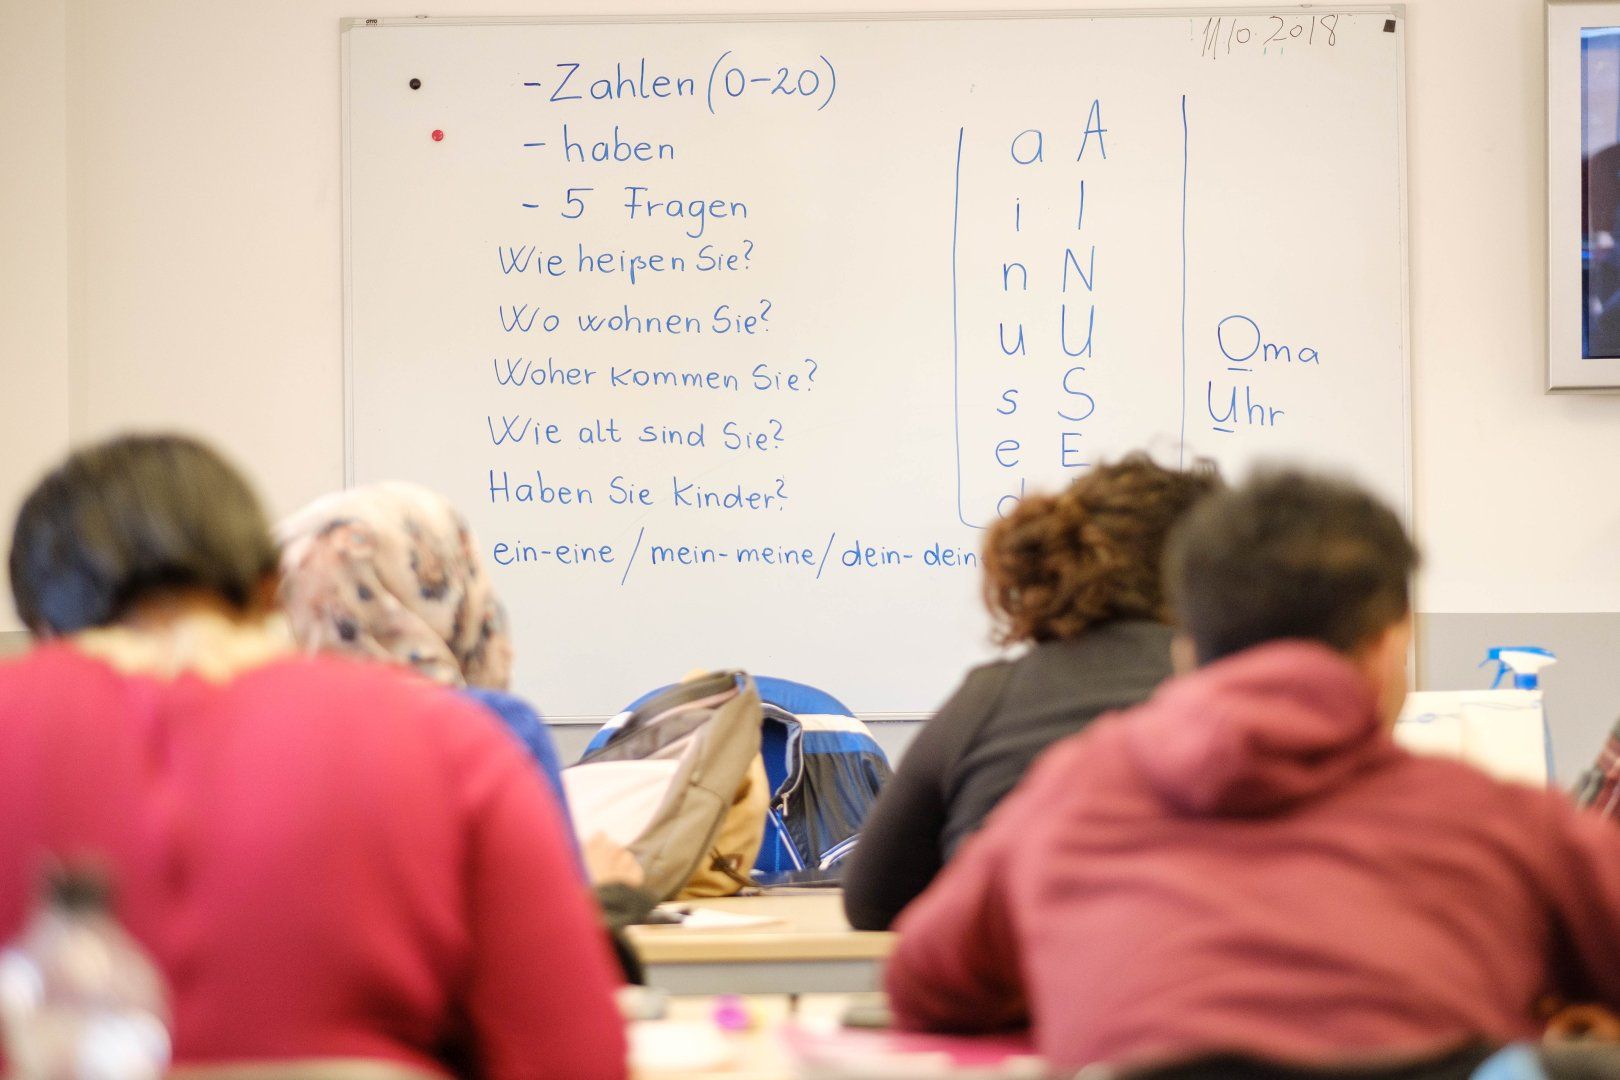 11.10.2018
- Zahlen (0-20)
- haben
- 5 Fragen
Wie heißen Sie?
Wo wohnen Sie?
Woher kommen Sie?
Wie alt sind Sie?
Haben Sie Kinder?
ein-eine / mein-meine / dein-dein
a A
i I
n N
u U
s S
e E
d
Oma
Uhr